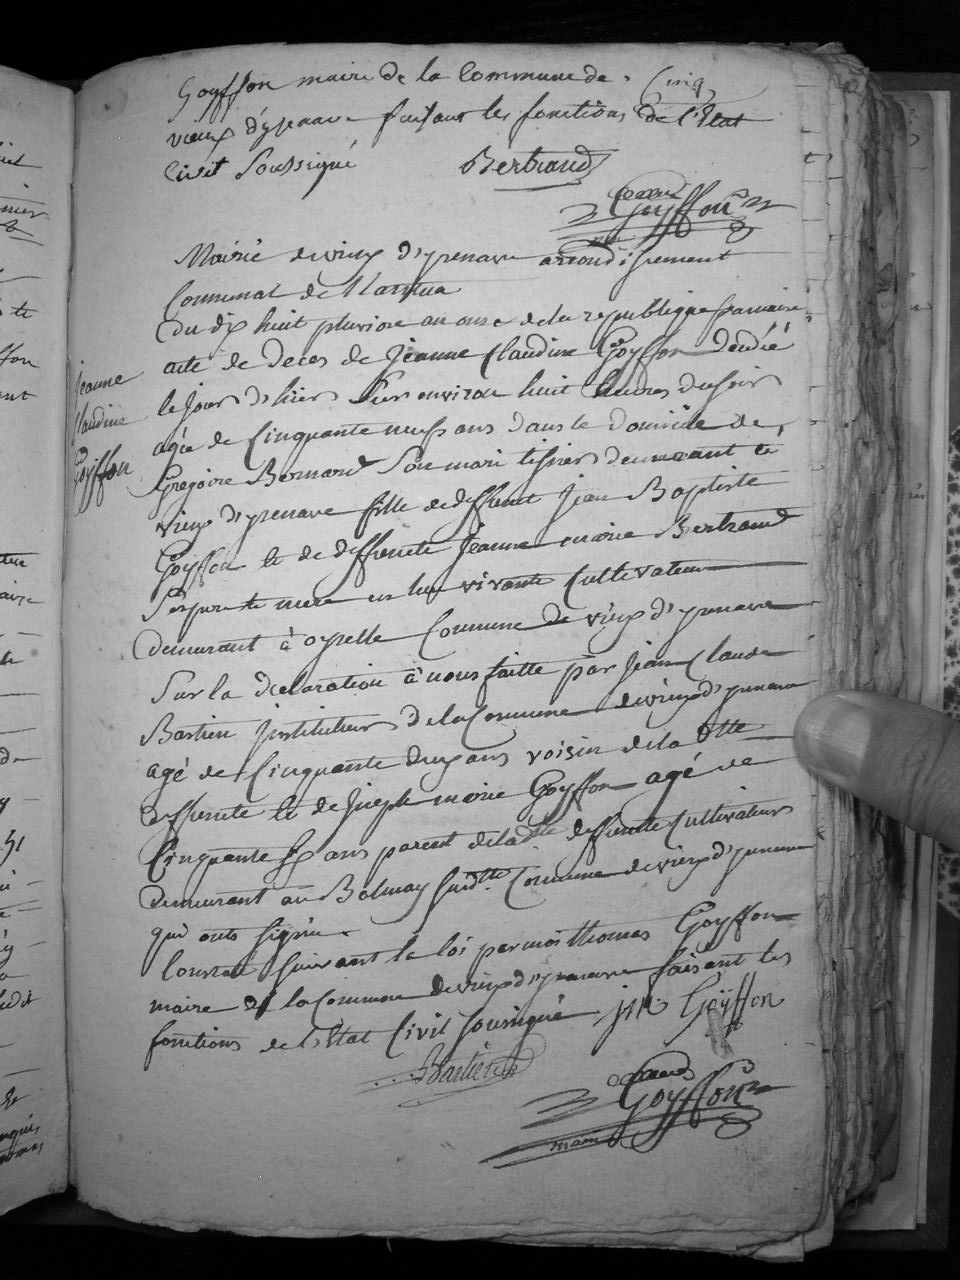 Cinq
Goyffon maire de la Commune de
vieux d'yzenave faisant les fonctions de l'Etat
Civil Soussigné Bertrand
Goyffon
maire
Mairie de vieux d'yzenave arrondissement
Communal de Nantua
Du dix huit pluviose an onze de la republique francaise
acte de Deces de Jeanne Claudine Goyffon décédé
Jeanne
Claudine
Goyffon
le jour d'hier Sur environ huit heures du soir
agée de Cinquante neuf ans dans le domicile de
Gregoire Bernard Son mari tisser demeurant à
vieux d'yzenave fille de deffunt Jean Baptiste
Goyffon et de deffuncte Jeanne marie Bertrand
Ses pere et mere en leur vivants Cultivateur
demeurant à oyselle Commune de vieux d'yzenave
Sur la declaration à nous faitte par Jean Claude
Bastien Instituteur de la Commune de vieux d'yzenave
agé de Cinquante deux ans voisin de la dtte
deffuncte et de Joseph marie Goyffon agé de
Cinquante six ans parent de la dtte deffuncte Cultivateur
demeurant au Balmay susdtte Commune de vieux d'yzenave
qui onts signé
Constaté suivant la loi par moi thomas Goyffon
maire de la Commune de vieux d'yzenave faisant les
fonctions de l'Etat Civil soussigné jm Goyffon
Bastien
Goyffon
maire